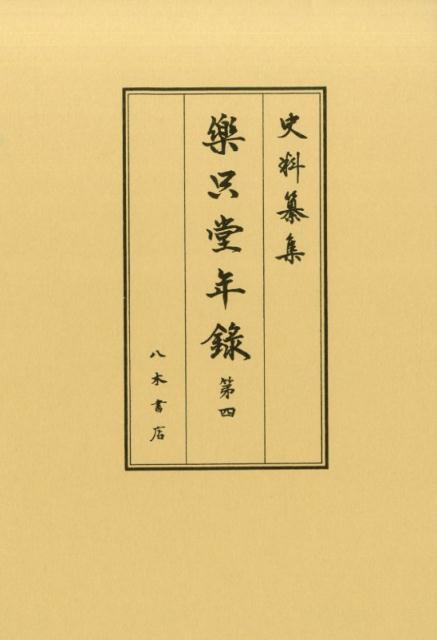 史料纂集
樂只堂年錄 第四
八木書店